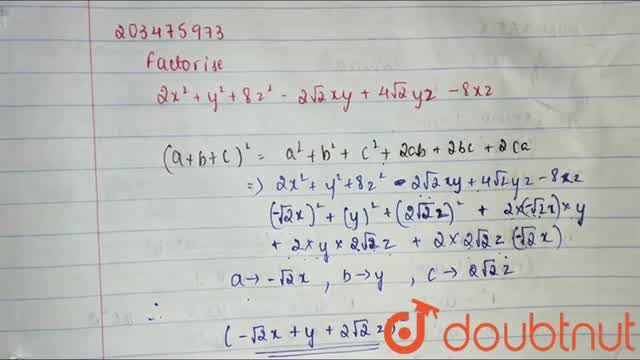 203475973
factorise
2x² + y² + 8z² - 2√2xy + 4√2yz - 8xz
(a+b+c)² = a² + b² + c² + 2ab + 2bc + 2ca
=) 2x² + y² + 8z² - 2√2xy + 4√2yz - 8xz
(-√2x)² + (y)² + (2√2z)² + 2×(-√2x)×y
+ 2×y×2√2z + 2×2√2z(-√2x)
a→ -√2x , b→y , c→ 2√2z
∴
(-√2x + y + 2√2z)
doubtnut